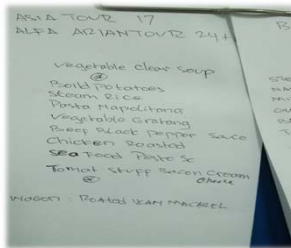 ASIA TOUR 17
ALFA ARIANTOUR 24+
Vegetable Clear Soup
@
Boild Potatoes
Steam Rice
Pasta Napolitana
Vegetable Gratang
Beef Black Pepper Sauce
Chicken Roasted
Sea Food Plate Sc
Tomat Stuff Bacon Cream
@ Cheese
B